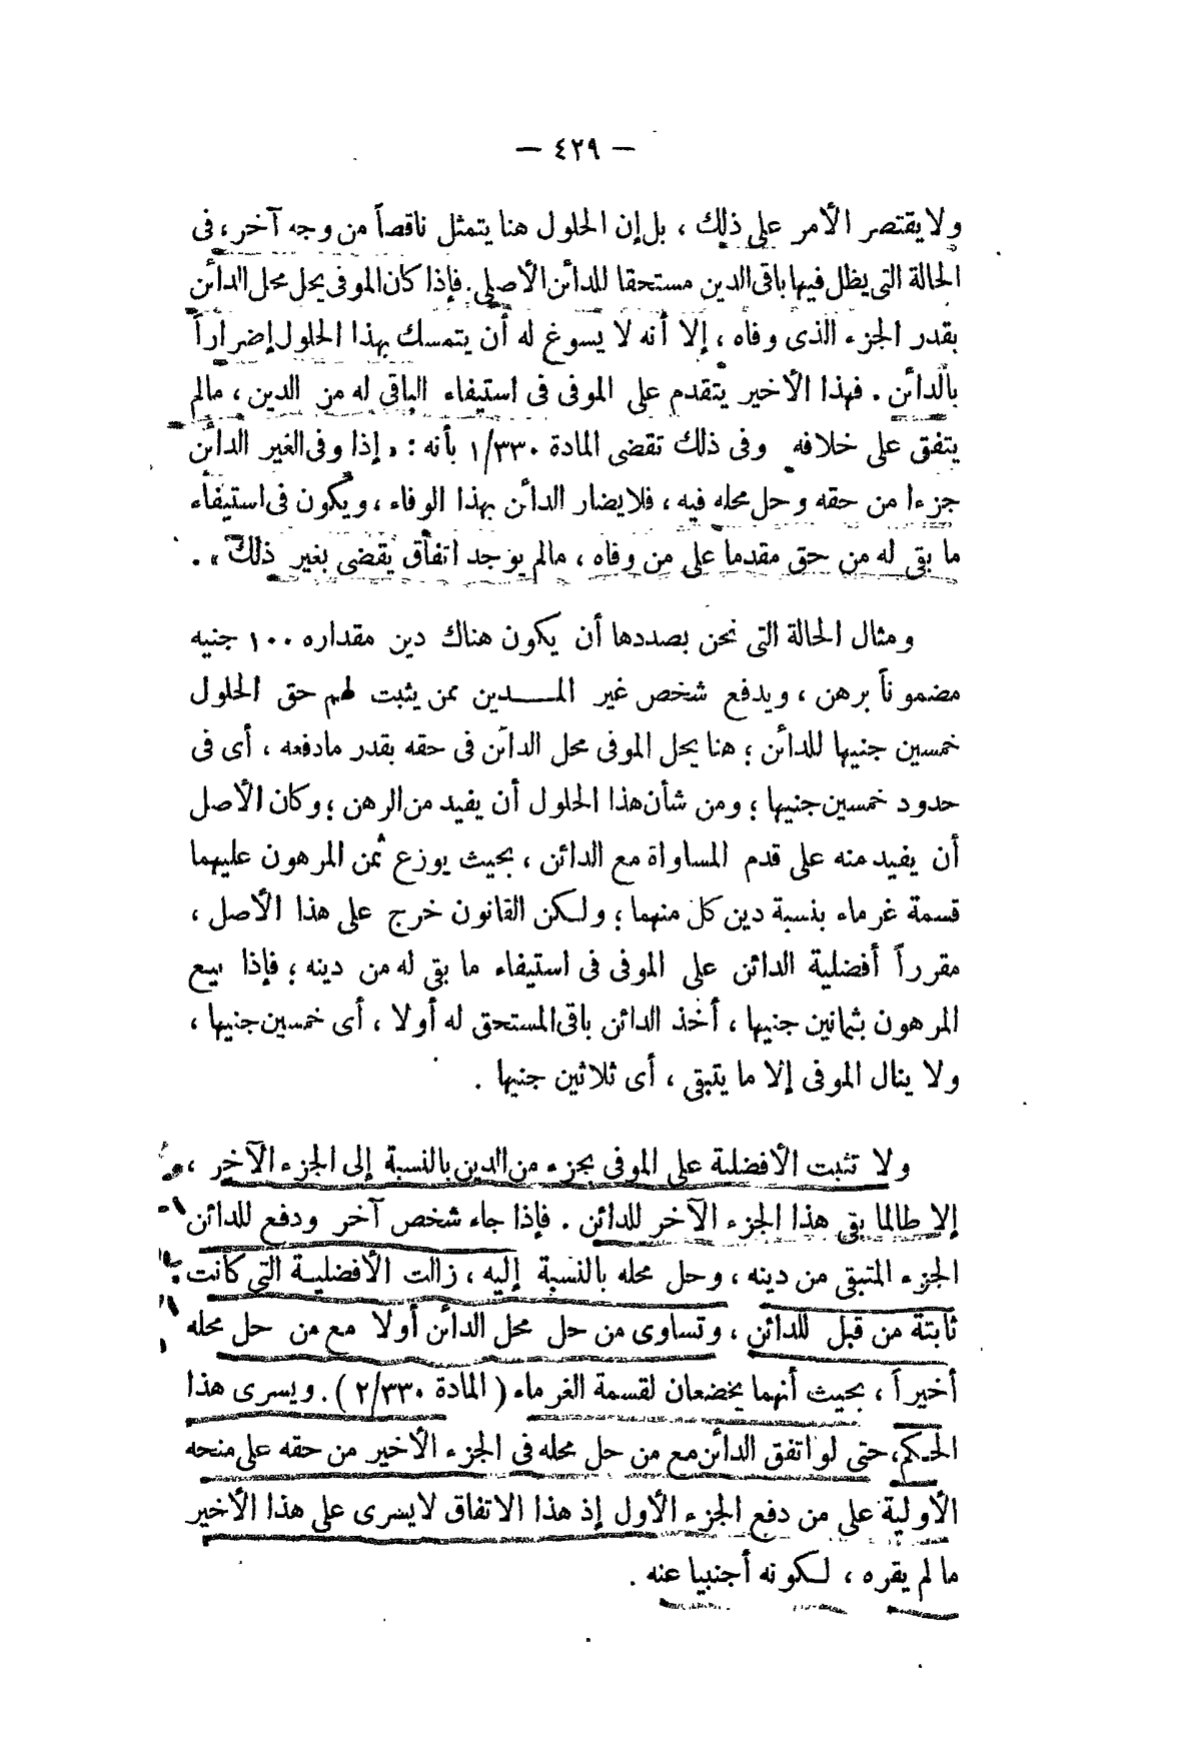 — ٤٢٩ —
ولا يقتصر الأمر على ذلك ، بل إن الحلول هنا يتمثل ناقصاً من وجه آخر ، فى
الحالة التى يظل فيها باقى الدين مستحقا للدائن الأصلى . فإذا كان الموفى يحل محل الدائن
بقدر الجزء الذى وفاه ، إلا أنه لا يسوغ له أن يتمسك بهذا الحلول إضراراً
بالدائن . فهذا الأخير يتقدم على الموفى فى استيفاء الباقى له من الدين ، مالم
يتفق على خلافه وفى ذلك تقضى المادة ١/٣٣٠ بأنه : « إذا وفى الغير الدائن
جزءا من حقه وحل محله فيه ، فلا يضار الدائن بهذا الوفاء ، ويكون فى استيفاء
ما بقى له من حق مقدما على من وفاه ، مالم يوجد اتفاق يقضى بغير ذلك » .
ومثال الحالة التى نحن بصددها أن يكون هناك دين مقداره ١٠٠ جنيه
مضموناً برهن ، ويدفع شخص غير المدين ممن يثبت لهم حق الحلول
خمسين جنيها للدائن ؛ هنا يحل الموفى محل الدائن فى حقه بقدر مادفعه ، أى فى
حدود خمسين جنيها ؛ ومن شأن هذا الحلول أن يفيد من الرهن ؛ وكان الأصل
أن يفيد منه على قدم المساواة مع الدائن ، بحيث يوزع ثمن المرهون عليهما
قسمة غرماء بنسبة دين كل منهما ؛ ولكن القانون خرج على هذا الأصل ،
مقرراً أفضلية الدائن على الموفى فى استيفاء ما بقى له من دينه ؛ فإذا بيع
المرهون بثمانين جنيها ، أخذ الدائن باقى المستحق له أولا ، أى خمسين جنيها ،
ولا ينال الموفى إلا ما يتبقى ، أى ثلاثين جنيها .
ولا تثبت الأفضلية على الموفى بجزء من الدين بالنسبة إلى الجزء الآخر ،
إلا طالما بقى هذا الجزء الآخر للدائن . فإذا جاء شخص آخر ودفع للدائن
الجزء المتبقى من دينه ، وحل محله بالنسبة إليه ، زالت الأفضلية التى كانت
ثابتة من قبل للدائن ، وتساوى من حل محل الدائن أولا مع من حل محله
أخيراً ، بحيث أنهما يخضعان لقسمة الغرماء ( المادة ٢/٣٣٠ ) . ويسرى هذا
الحكم ، حتى لو اتفق الدائن مع من حل محله فى الجزء الأخير من حقه على منحه
الأولية على من دفع الجزء الأول إذ هذا الاتفاق لا يسرى على هذا الأخير
ما لم يقره ، لكونه أجنبيا عنه .